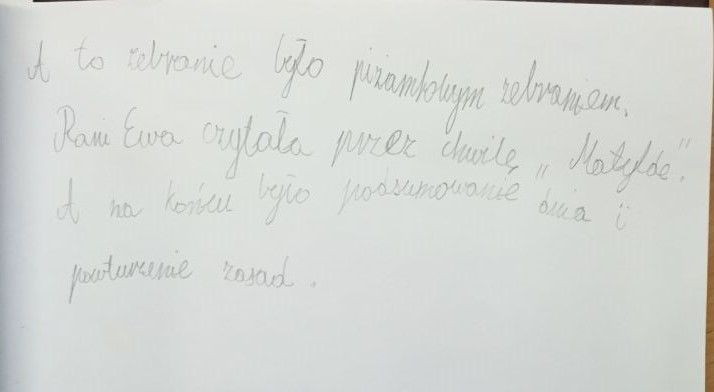 A to zebranie było piżamkowym zebraniem.
Pani Ewa czytała przez chwilę „Matyldę".
A na końcu było podsumowanie dnia i
powturzenie zasad.